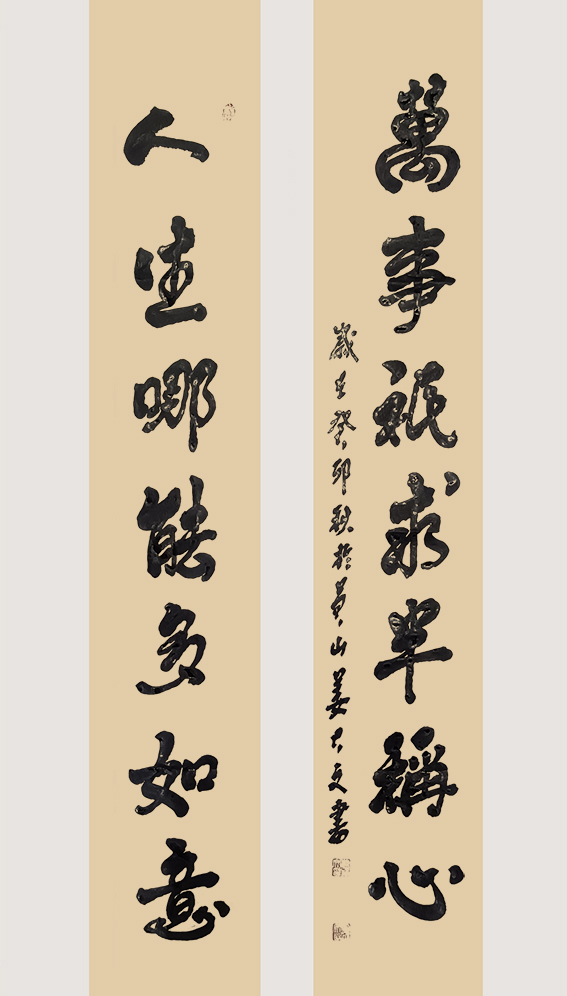 萬事祇求半稱心
歲在癸卯秋於黃山姜大文書
人生哪能多如意